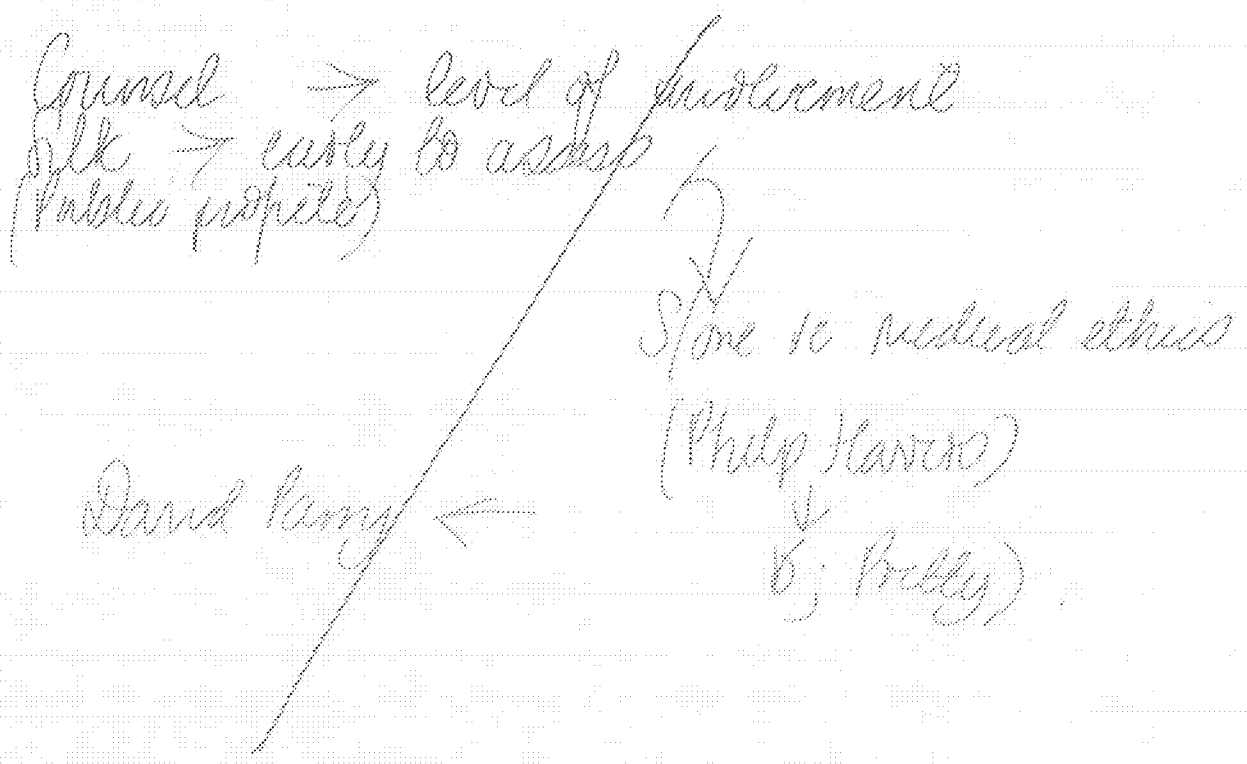 Counsel → level of involvement
→ early to assess
(Public profile)
Someone re medical ethics
(Philip Havers)
David Perry ←